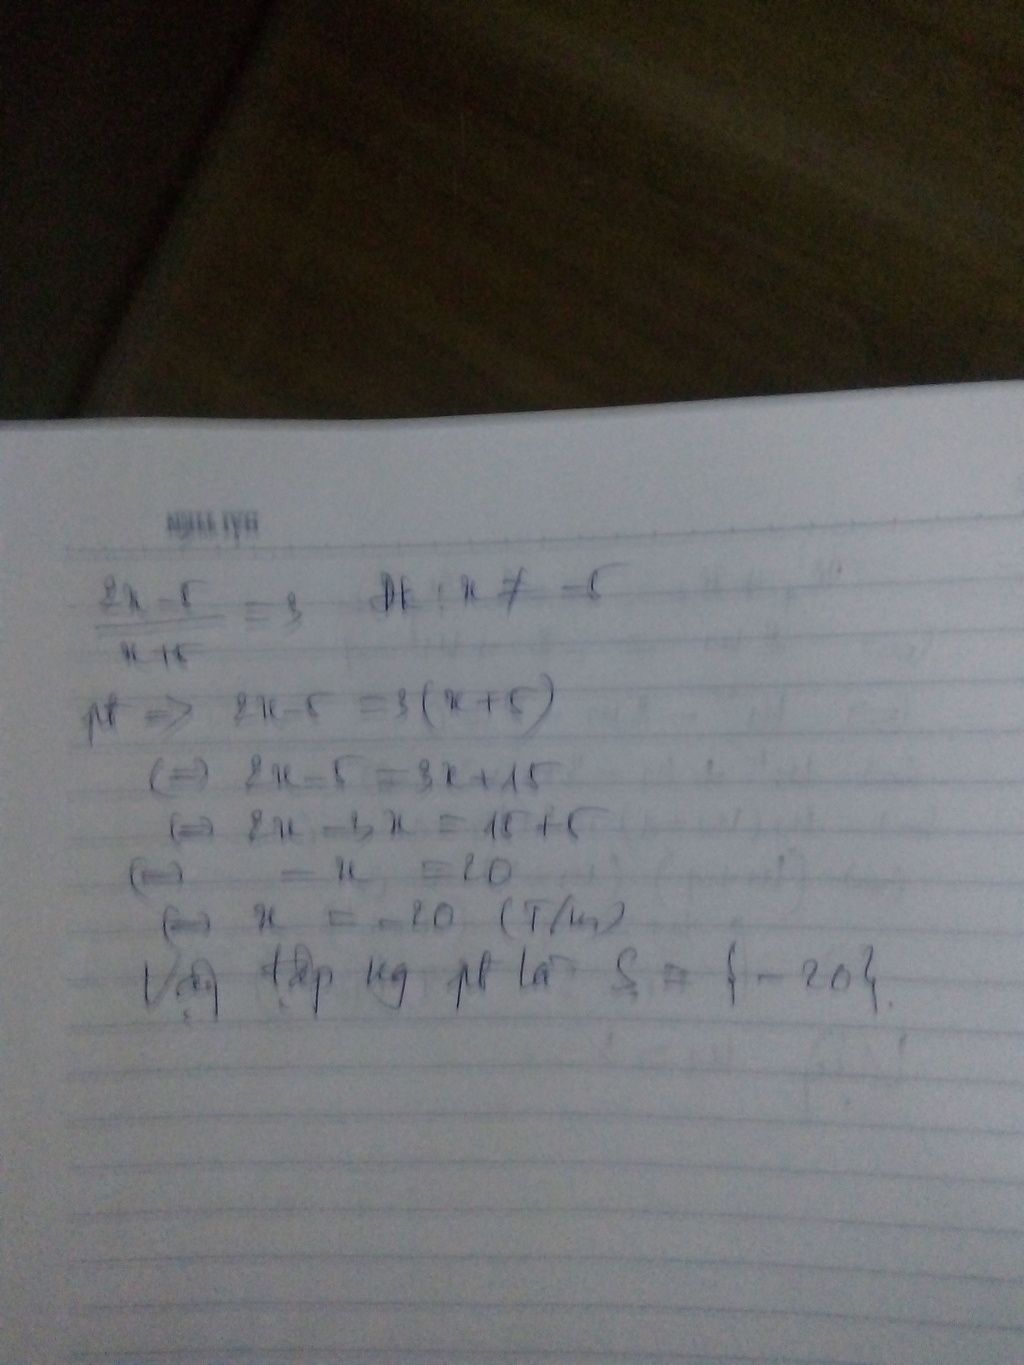 2x-5 / x+5 = 3 Đk : x ≠ -5
pt => 2x-5 = 3(x+5)
(=) 2x-5 = 3x+15
(=) 2x -3x = 15+5
(=) -x = 20
(=) x = -20 (T/m)
Vậy tập ng pt là S = {-20}.